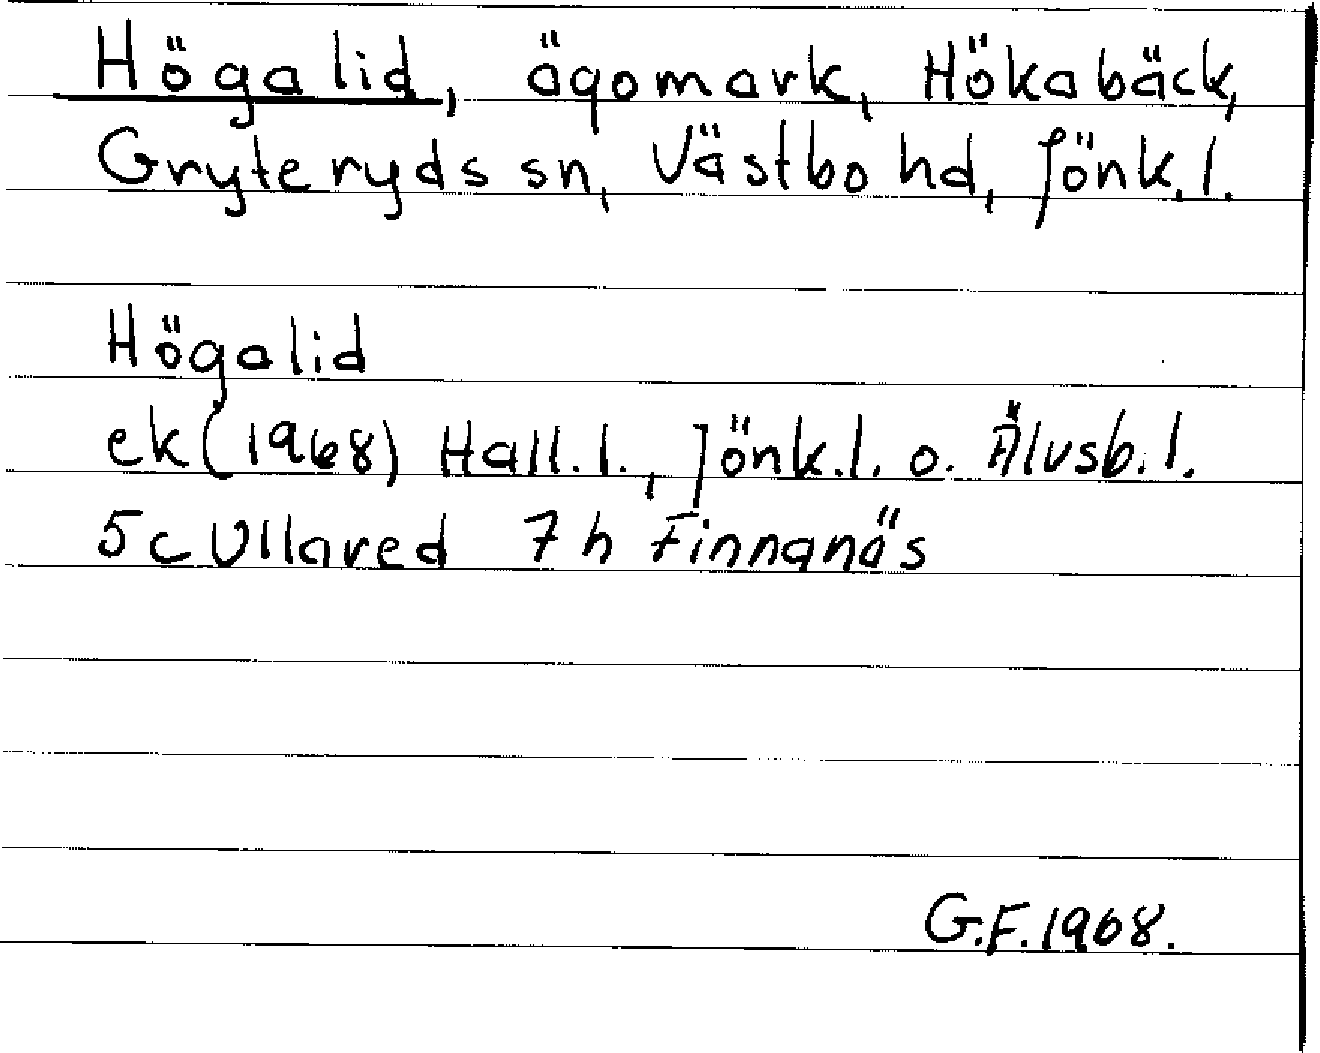 Högalid, ägomark, Hökabäck,
Gryteryds sn, Västbo hd, Jönk.l.
Högalid
ek (1968) Hall.l., Jönk.l. o. Älvsb.l.
5c Ullared 7h Finnanäs
G.F. 1968.